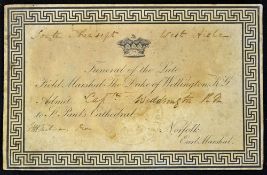 South Transept West Aisle
Funeral of the Late
Field Marshal The Duke of Wellington K.G.
Admit Capt
to St. Paul's Cathedral
Norfolk
Earl Marshal.